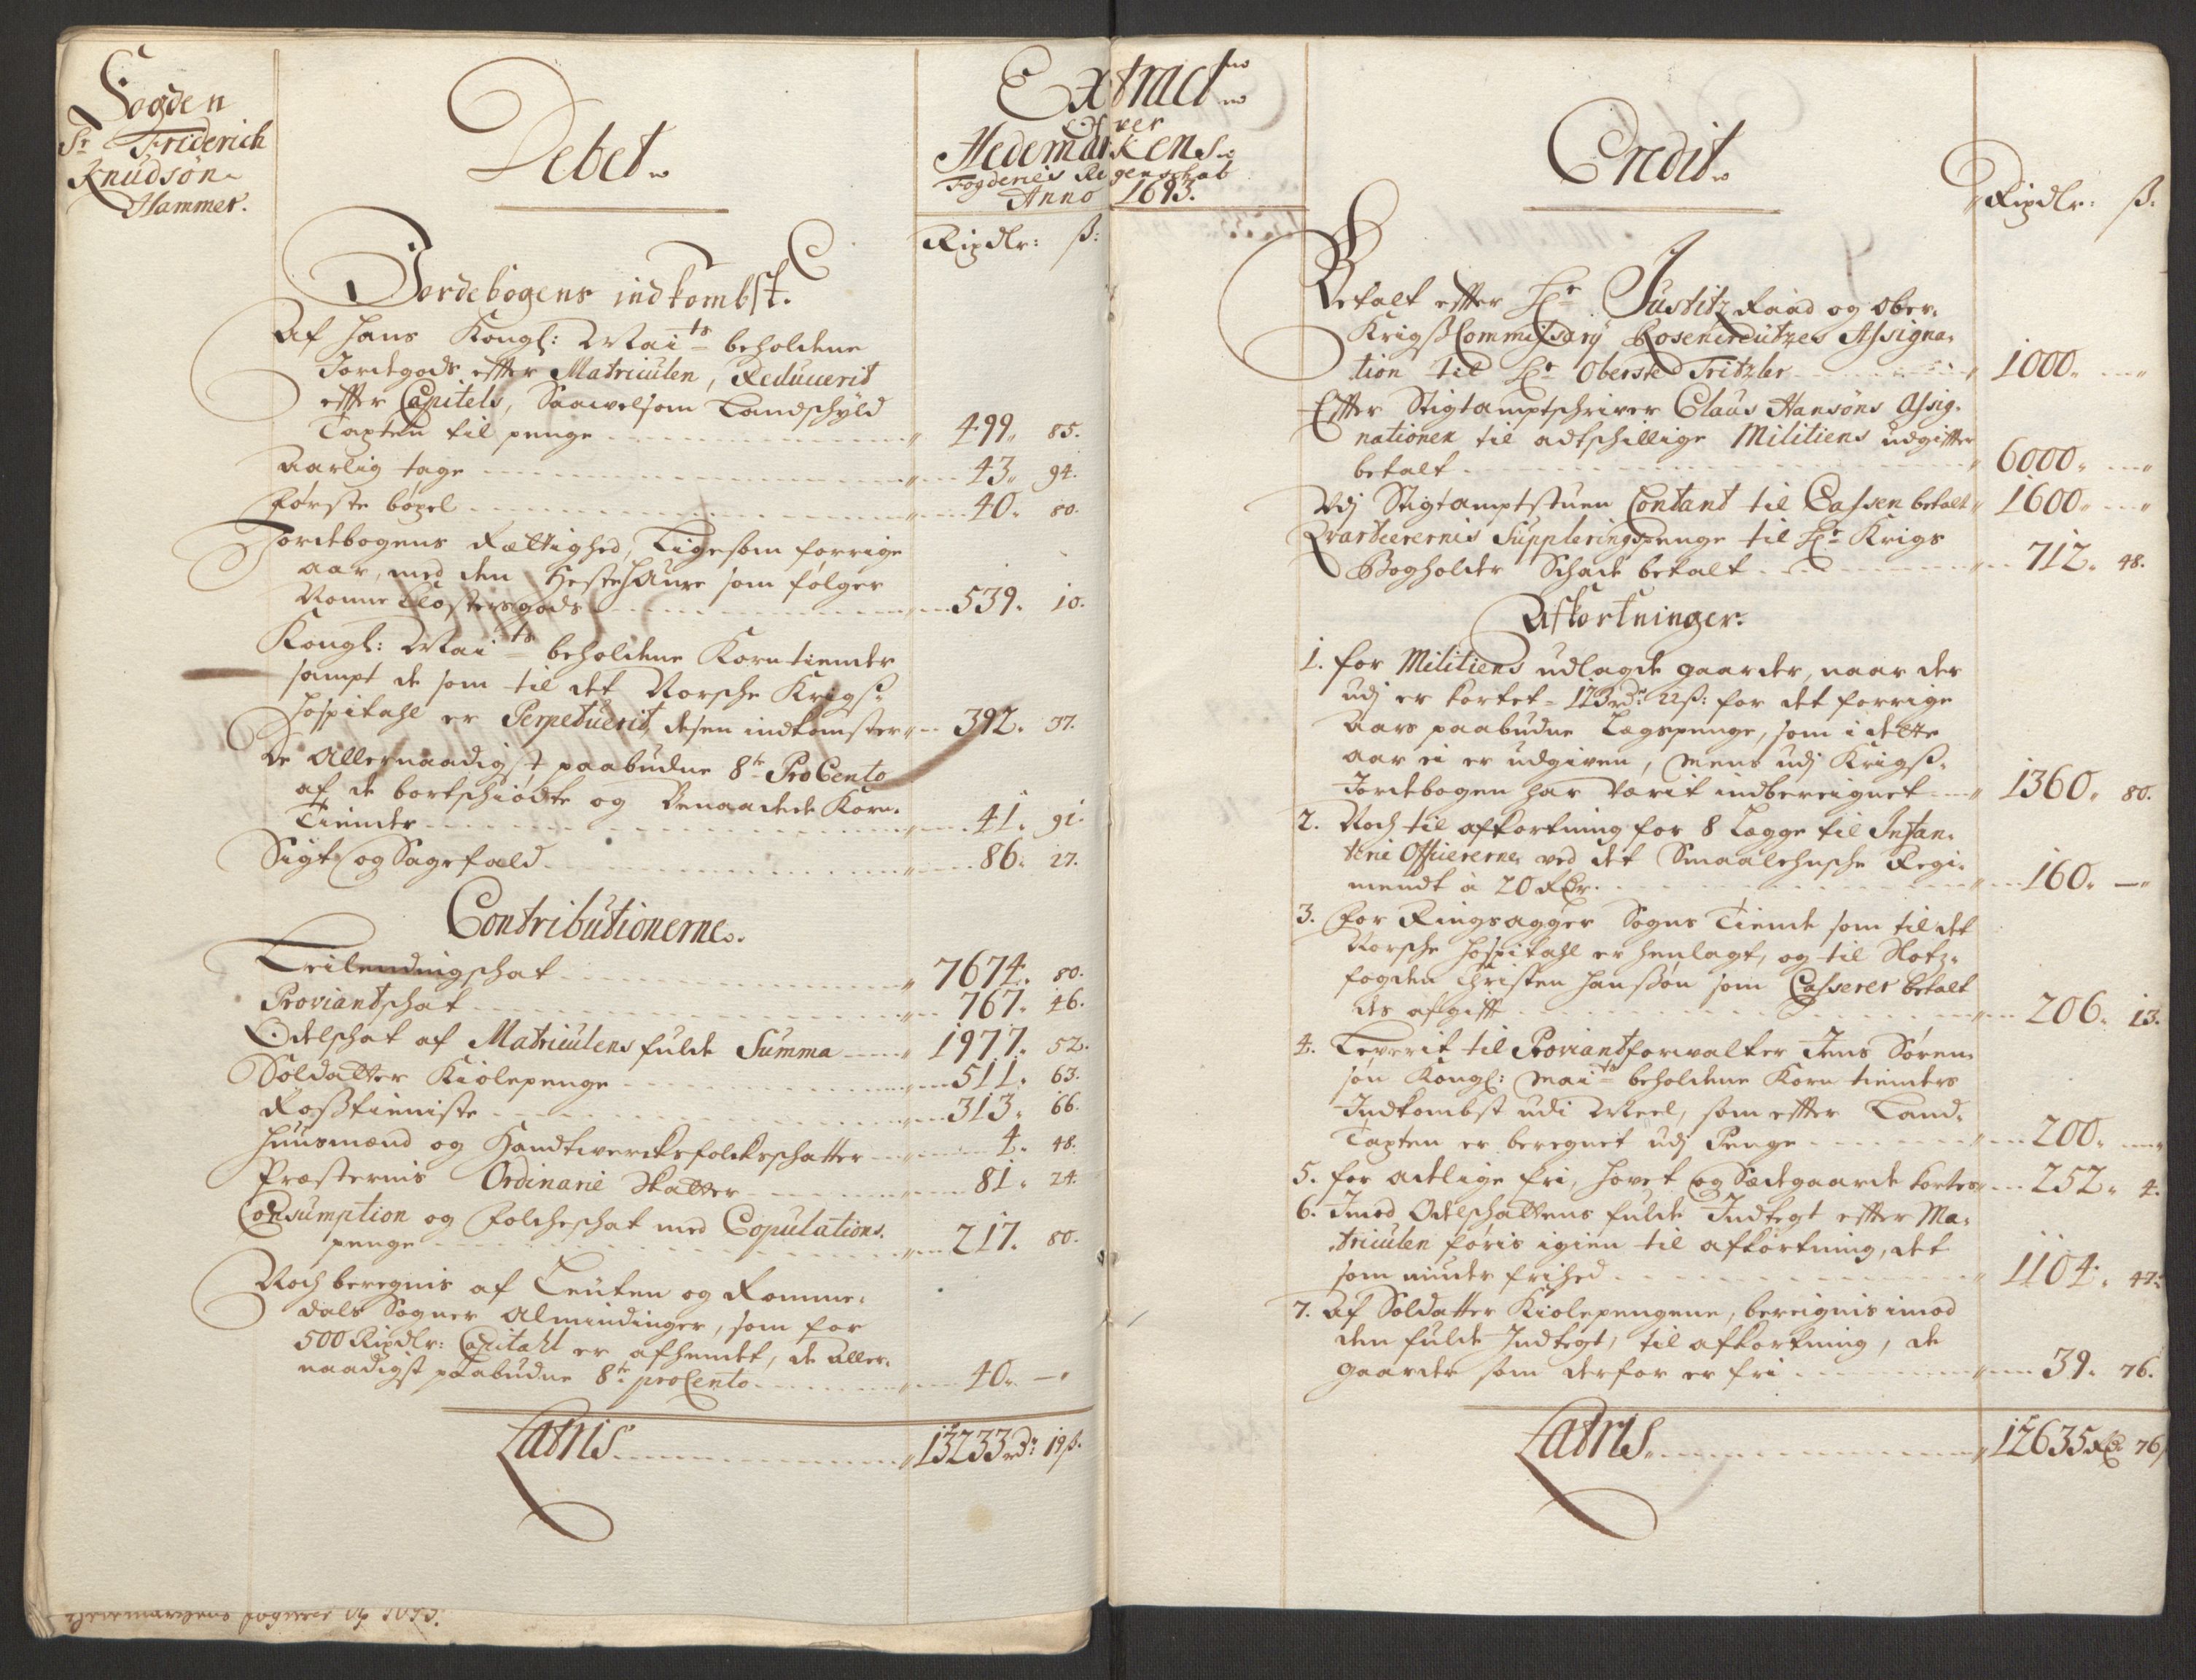 Fogden
Sr Friderich
Knudsøn
Hammer.
Debet
Extract
Over
Hedemarkens
Fogderies Regenschab
Anno 1693.
Rixdlr: ß:
Jordebogens indkombst.
Af Hans Kongl: Maits beholdene
Jordegods efter Matriculen, Reducerit
efter Capitels, Saawelsom Landschyld
Taxten til penge 499 85.
Aarlig tage 43 94.
Førtste bøxel 40 80.
Jordebogens Rettighed, Ligesom forrige
aar, med den som følger
Nonne Closters gods 539. 10.
Kongl: Maits beholdene Korntiender
sampt de som til det Norsche Krigs-
Hospitahl er Perpetuerit, desen indkomster 392. 37.
De Allernaadigst paabudne 8te ProCento
af de bortschiødte og Benaadede Korn-
Tiender 41. 91.
Sigt og Sagefald 86. 27.
Contributionerne.
Leilendingschat 7674. 80.
Proviantschat 767. 46.
Odelschat af Matriculens fulde Summa 1977. 52.
Soldatter Kiolepenge 511. 63.
Rosstieniste 313. 66.
Huusmænd og Handtwercksfolckschatter 4. 48.
Præsternis Ordinarie Skatter 81. 24.
Consumption og Folcheschat med Copulations-
penge 217. 80.
Noch beregnis af Leuten og Romme-
dals Sogner Almindinger, som for
500 Rixdlr: Capitahl er afhendet, de Aller-
naadigst paabudne 8te proCento 40. —
Latris 13233 rdr 19 ß.
Credit
Rixdlr: ß.
Betalt efter Hr Justitz Raad og Ober-
Krigs Commissary Rosencreutzes Assigna-
tion til Hr Obersted Tritzler 1000.
Efter Stigtamptschriver Claus Hansøns Assig-
nationer til adtschillige Militiens udgifter
betalt 6000.
Udj Stigtamptstuen Contant til Cassen betalt 1600.
Qvarteerernis Suppleringspenge til Hr Krigs
Bogholder Schade betalt 712. 48.
Afkortninger.
1. for Militiens udlagde gaarder, naar der
udj er kortet 123 rdr 22 ß: for det forrige
Aars paabudne Lægspenge, som i dette
aar ei er udgiven, mens udj Krigs-
Jordebogen har værit indbereignet 1360. 80.
2. Noch til afkortning for 8 Lægge til Infan-
terie Officererne ved det Smaalehnsche Regi-
mendt à 20 Rdr. 160. —
3. For Ringsagger Sogns Tiende som til det
Norsche Hospitahl er henlagt, og til Slotz-
fogden Christen Hansøn som Casserer betalt
des afgift 206. 13.
4. Leverit til Proviantforvalter Jens Søren-
søn Kongl: Maits beholdene Korn tienders
Indkombst udi Meel, som efter Land-
Taxten er beregnet udj Penge 200.
5. for adelige fri, Hovet og Sædegaarde kortes 252. 4.
6. Imod Odelschattens fulde Indtegt efter Ma-
triculen føris igien til afkortning, det
som niuder frihed 1104. 47.
7. Af Soldatter Kiolepengene, bereignis imod
den fulde Indtegt, til afkortning, de
gaarder som derfor er fri 39. 76.
Latris 12635 Rdr 76